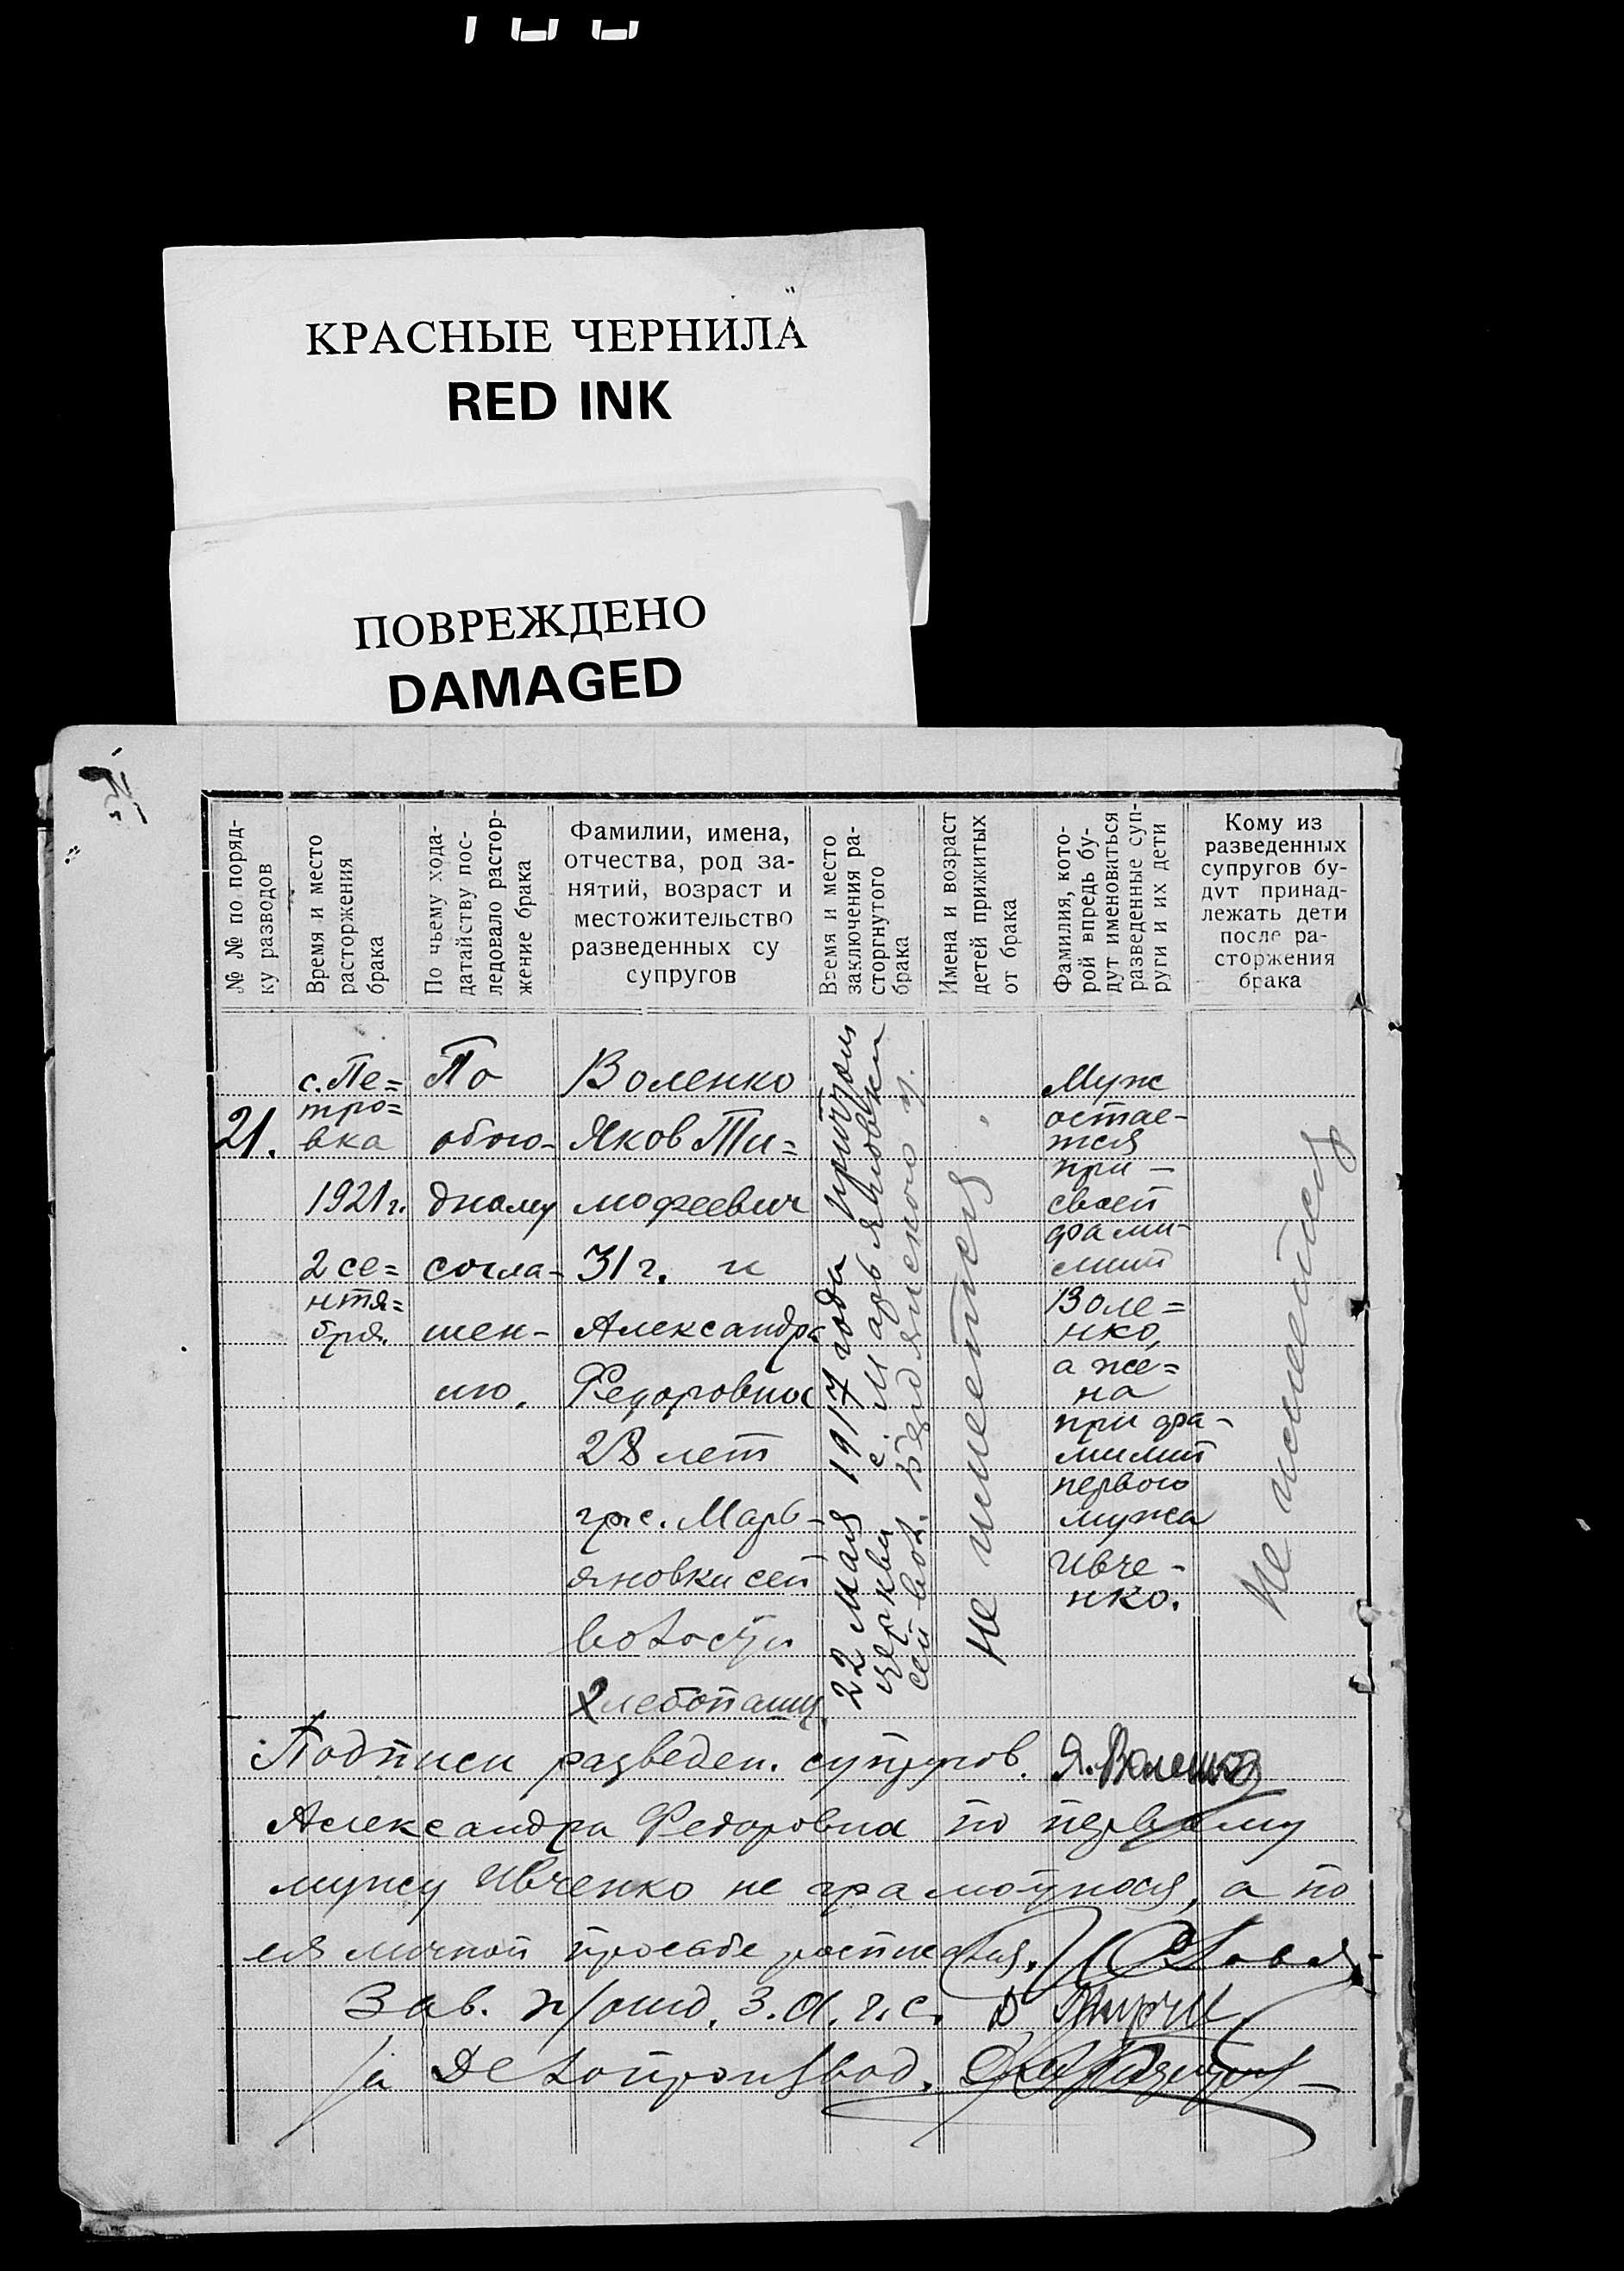 КРАСНЫЕ ЧЕРНИЛА
RED INK
ПОВРЕЖДЕНО
DAMAGED
№ № по поряд-
ку разводов
Время и место
расторжения
брака
По чьему хода-
датайству пос-
ледовало растор-
жение брака
Фамилии, имена,
отчества, род за-
нятий, возраст и
местожительство
разведенных су
супругов
Время и место
заключения ра-
сторгнутого
брака
Имена и возраст
детей прижитых
от брака
Фамилия, кото-
рой впредь бу-
дут именоваться
разведенные суп-
руги и их дети
Кому из
разведенных
супругов бу-
дут принад-
лежать дети
после ра-
сторжения
брака
21.
с. Пе=
тро=
вка
1921 г.
2 се=
нтя=
бря.
По
обою-
дному
согла-
шен-
ию.
Воленко
Яков Ти=
мофеевич
31 г. и
Александра
Федоровна
28 лет
гр. с. Марь-
яновки сей
волости
хлебопашц.
22 мая 1917 года
церкви с. Марьяновки
сей вол. Бердянского у.
не имеется
Муж
остае-
тся
при -
своей
фами-
лии
Воле=
нко,
а же=
на
при фа-
милии
первого
мужа
Ивче-
нко.
Не имеется
Подписи разведен. супругов. Я. Воленко
Александра Федоровна по первому
мужу Ивченко не грамотная, а по
ея личной просьбе
Зав. п/отд. З.А.Г.С.
Делопроизвод.